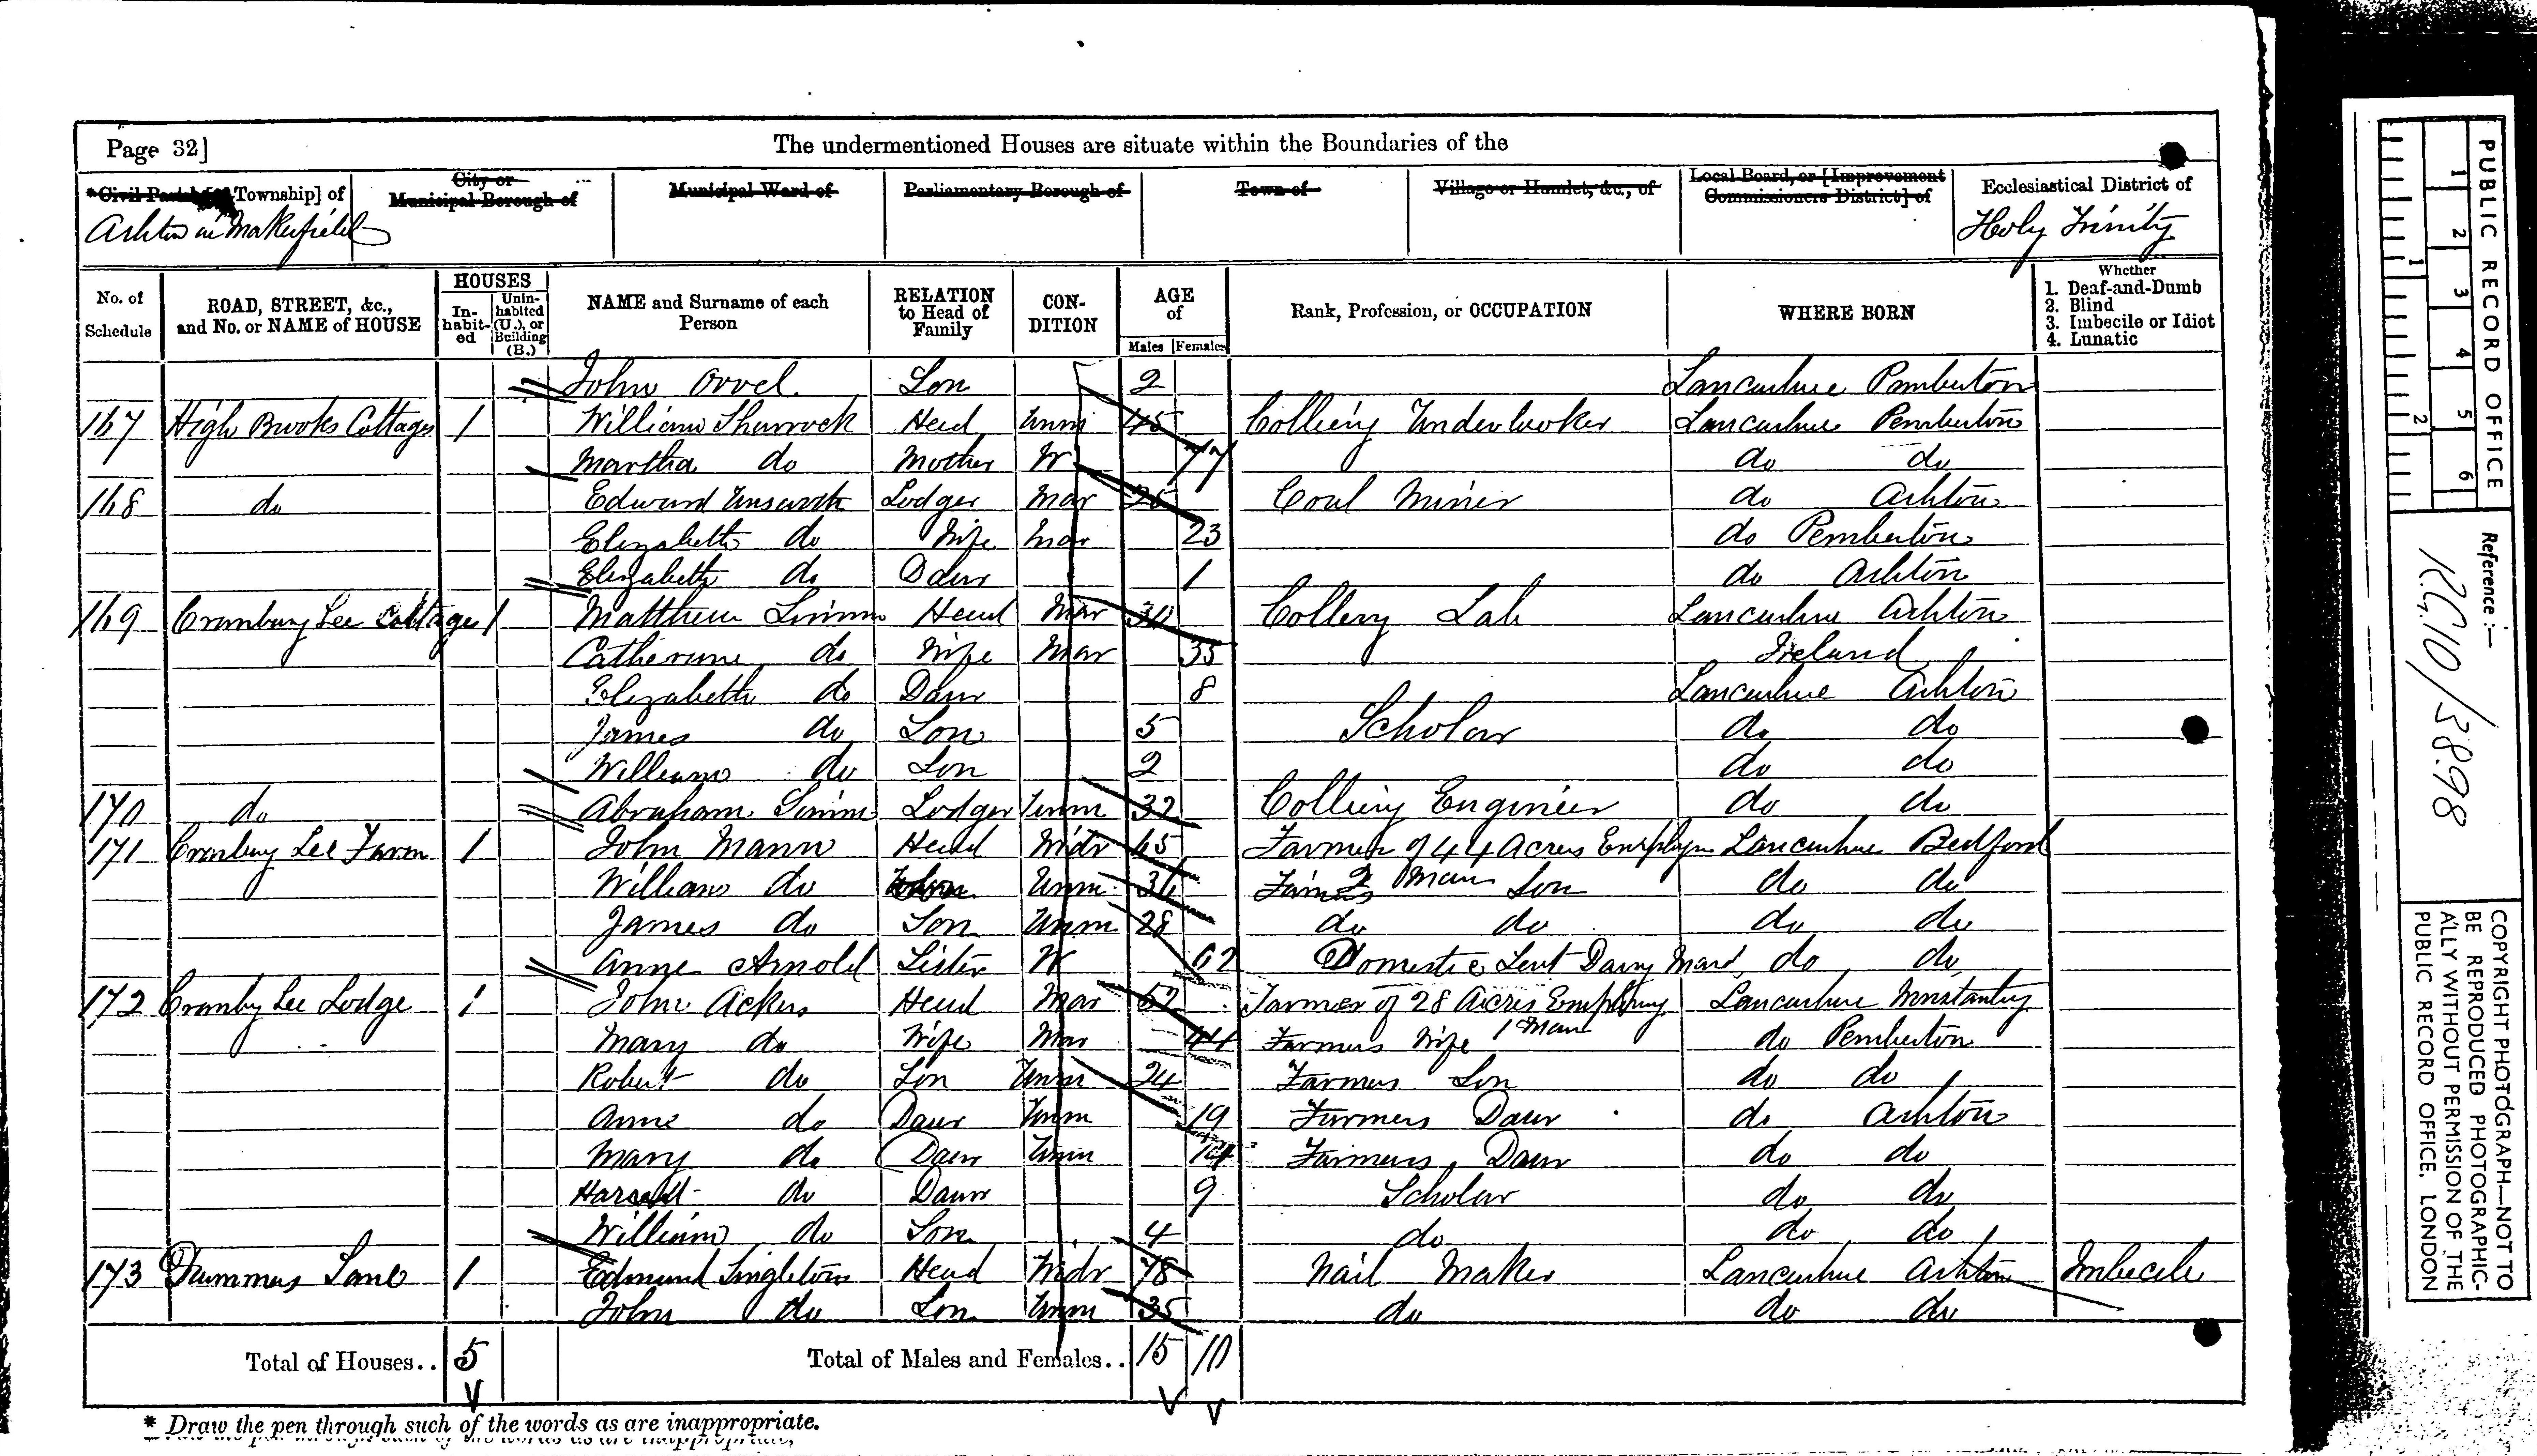 Page 32] The undermentioned Houses are situate within the Boundaries of the
*Civil Parish [or Township] of City or Municipal Borough of Municipal Ward of Parliamentary Borough of Town of Village or Hamlet, &c., of Local Board, or [Improvement Commissioners District] of Ecclesiastical District of
Ashton in Makerfield Holy Trinity
No. of Schedule ROAD, STREET, &c., and No. or NAME of HOUSE HOUSES Inhabited Uninhabited (U.), or Building (B.) NAME and Surname of each Person RELATION to Head of Family CONDITION AGE of Males Females Rank, Profession, or OCCUPATION WHERE BORN Whether 1. Deaf-and-Dumb 2. Blind 3. Imbecile or Idiot 4. Lunatic
John Orrel Son 2 Lancashire Pemberton
167 High Brooks Cottages 1 William Sharrock Head Unm 45 Colliery Underlooker Lancashire Pemberton
Martha do Mother W 77 do do
168 do Edward Unsworth Lodger Mar 25 Coal Miner do Ashton
Elizabeth do Wife Mar 23 do Pemberton
Elizabeth do Daur 1 do Ashton
169 Cranbury Lee Cottages 1 Matthew Simm Head Mar Colliery Lab Lancashire Ashton
Catherine do Wife Mar 35 Ireland
Elizabeth do Daur 8 Lancashire Ashton
James do Son 5 Scholar do do
William do Son 2 do do
170 do Abraham Simm Lodger Unm 32 Colliery Engineer do do
171 Cranbury Lee Farm 1 John Mann Head Widr 65 Farmer of 44 Acres Employing Lancashire Bedford
2 Man
William do Son Unm Farmers Son do do
James do Son Unm 28 do do do do
Anne Arnold Sister W 62 Domestic Servt Dairy Maid do do
172 Cranby Lee Lodge 1 John Ackers Head Mar 52 Farmer of 28 Acres Employing Lancashire
1 Man
Mary do Wife Mar 44 Farmers Wife do Pemberton
Robert do Son Unm 24 Farmers Son do do
Anne do Daur Unm 19 Farmers Daur do Ashton
Mary do Daur Unm 14 Farmers Daur do do
do Daur 9 Scholar do do
William do Son 4 do do do
173 Drummers Lane 1 Edmund Singleton Head Widr 78 Nail Maker Lancashire Ashton Imbecile
John do Son Unm 35 do do do
Total of Houses.. 5 Total of Males and Females.. 15 10
* Draw the pen through such of the words as are inappropriate.
PUBLIC RECORD OFFICE
1 2 3 4 5 6
1 2
Reference:—
R.G. 10/3898
COPYRIGHT PHOTOGRAPH—NOT TO
BE REPRODUCED PHOTOGRAPHIC-
ALLY WITHOUT PERMISSION OF THE
PUBLIC RECORD OFFICE, LONDON